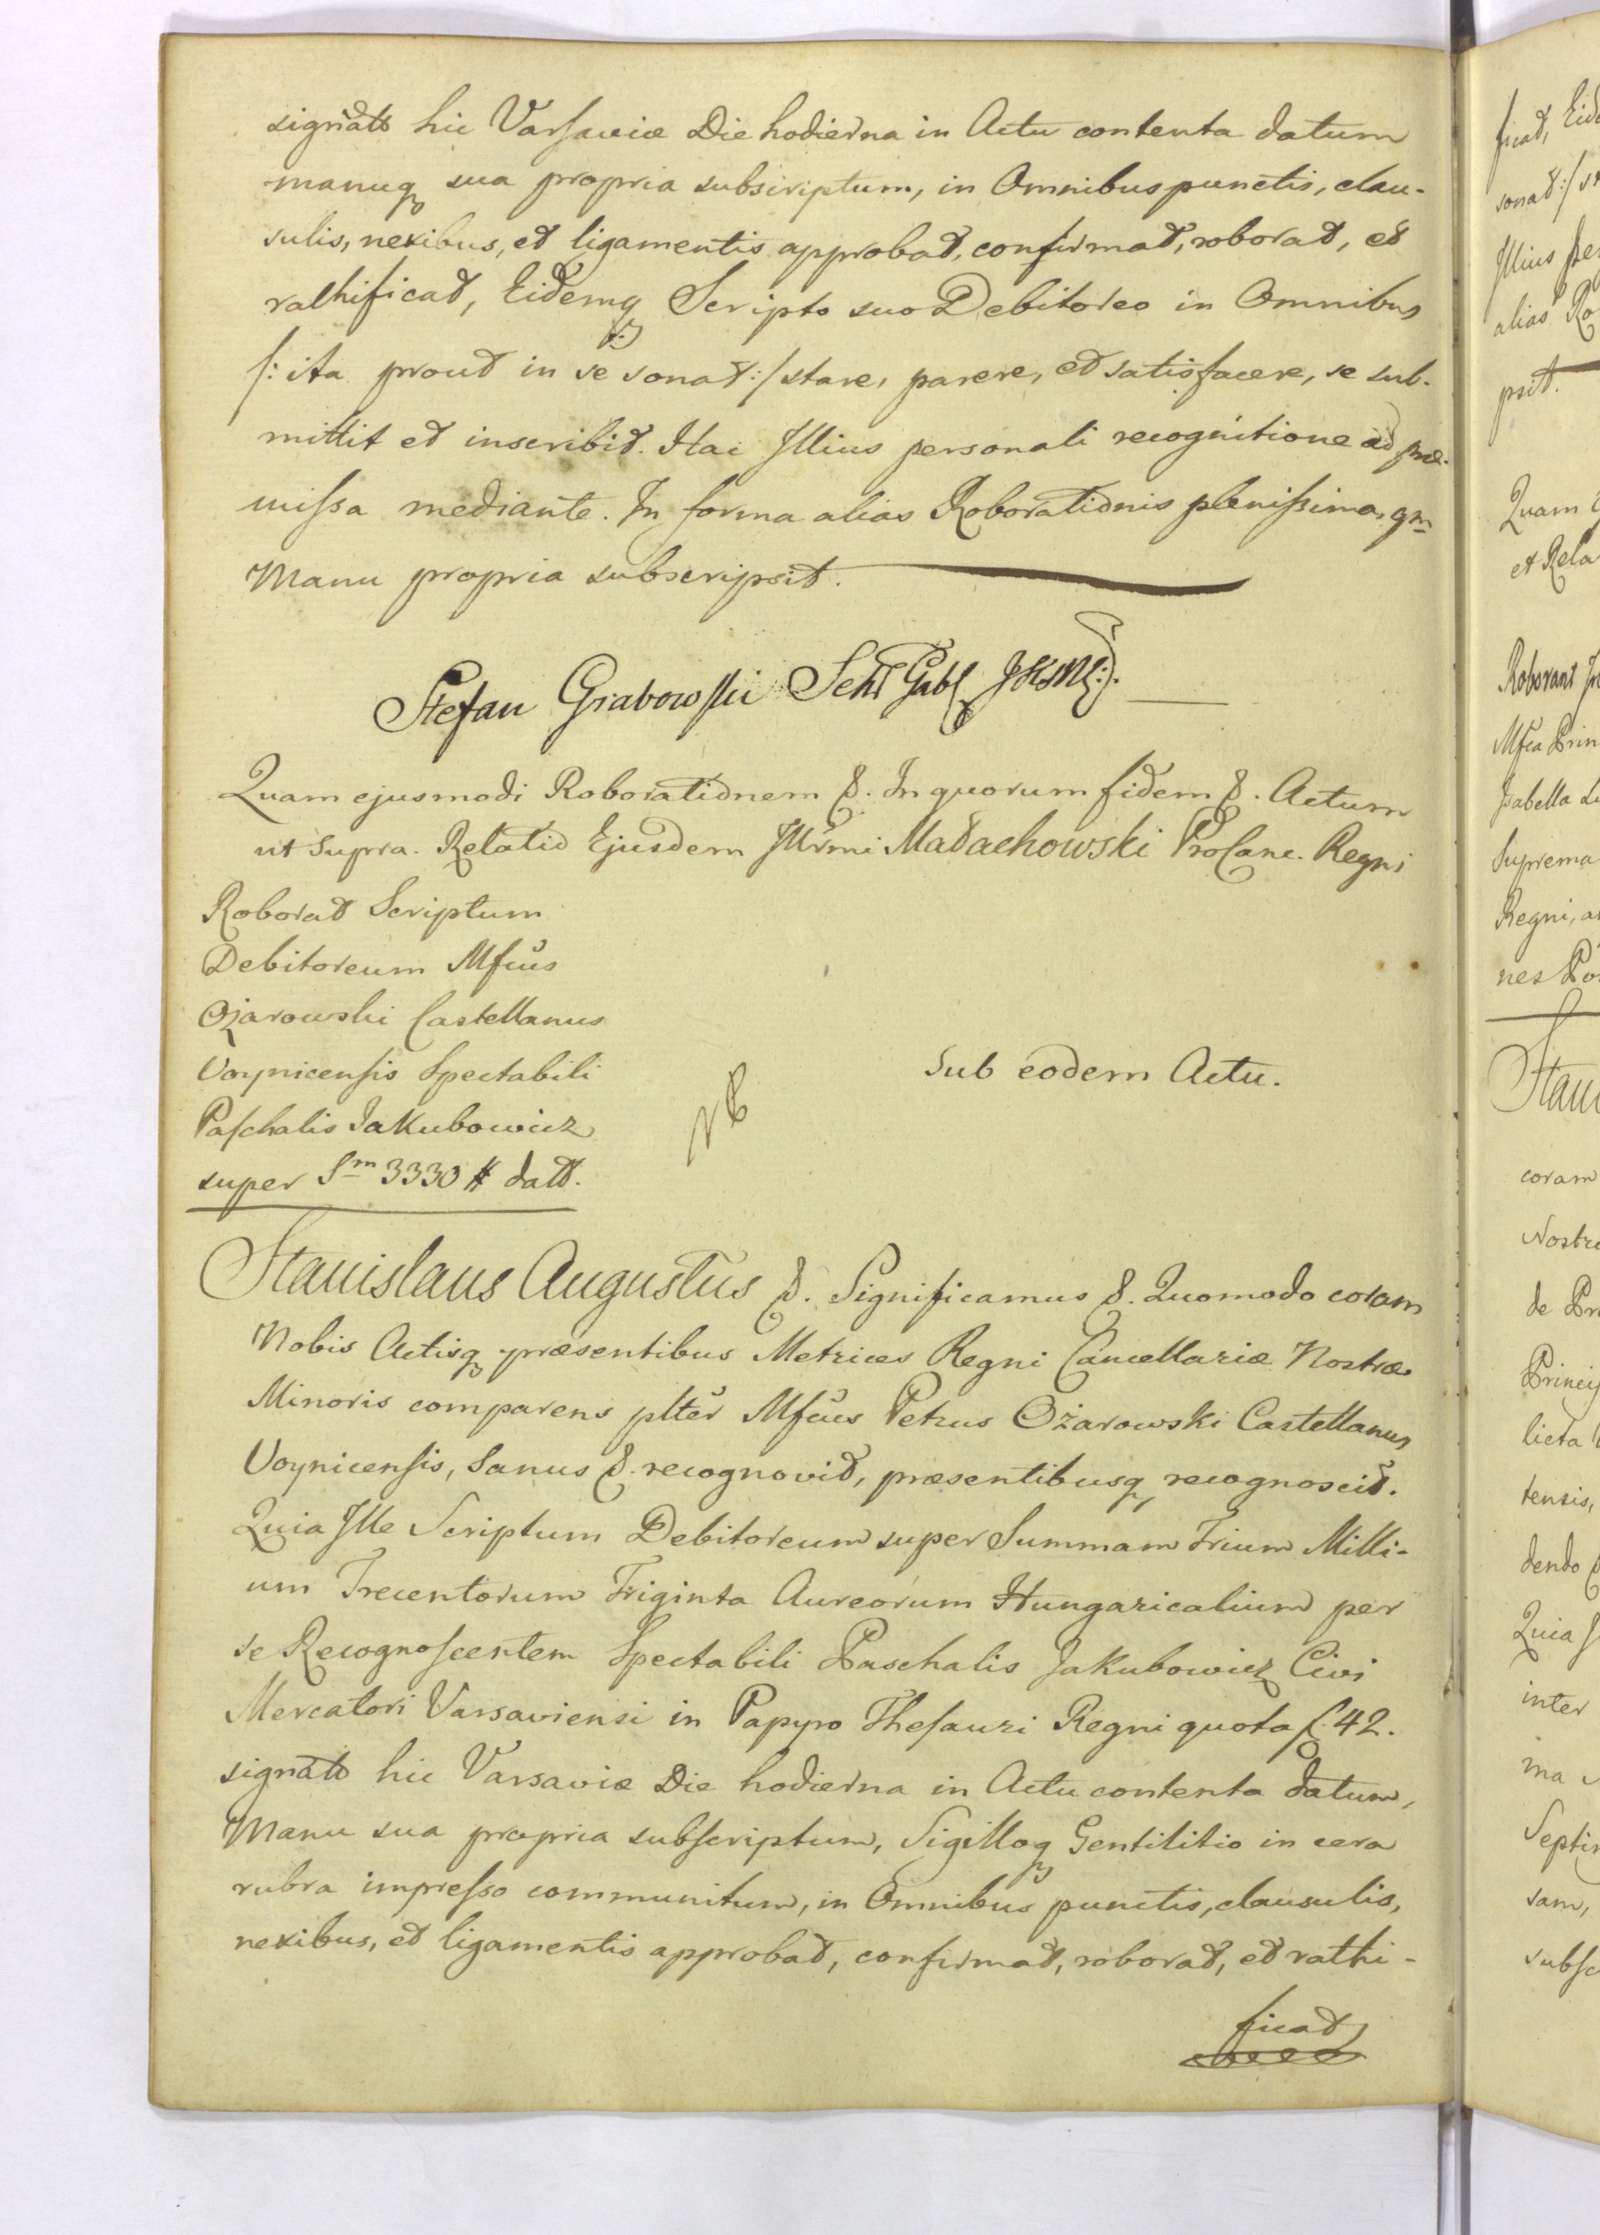 signatō hic Varsaviæ Die hodierna in Actu contenta datum
manuq₃ sua propria subscriptum, in Omnibus punctis, clau-
sulis, nexibus, et ligamentis approbat, confirmat, roborat, et
rathificat, Eidemq₃ Scripto suo Debitoreo in Omnibus
/: ita prout in se sonat :/ stare, parere, et satisfacere, se sub-
mittit et inscribit. Hac Illius personali recognitione ad præ-
missa mediante. In forma alias Roborationis plenissima, qm
Manu propria subscripsit.
Stefan Grabowski
Quam ejusmodi Roborationem &. In quorum fidem &. Actum
ut supra. Relatio Ejusdem Illrmi Małachowski ProCanc. Regni
Roborat Scriptum
Debitoreum Mfcus
Ożarowski Castellanus
Voynicensis Spectabili
Paschalis Jakubowicz
super Sm 3330 # datt.
Sub eodem Actu.
Stanislaus Augustus &. Significamus &. Quomodo coram
Nobis Actisq₃ præsentibus Metrices Regni Cancellariæ Nostræ
Minoris comparens plter Mfcus Petrus Ożarowski Castellanus
Voynicensis, Sanus &. recognovit, præsentibusq₃ recognoscit.
Quia Ille Scriptum Debitoreum super Summam Trium Milli-
um Trecentorum Triginta Aureorum Hungaricalium per
se Recognoscentem Spectabili Paschalis Jakubowicz Civi
Mercatori Varsaviensi in Papyro Thesauri Regni quota f. 42.
signatō hic Varsaviæ Die hodierna in Actu contenta datum,
Manu sua propria subscriptum, Sigilloq₃ Gentilitio in cera
rubra impresso communitum, in Omnibus punctis, clausulis,
nexibus, et ligamentis approbat, confirmat, roborat, et rathi-
ficat,